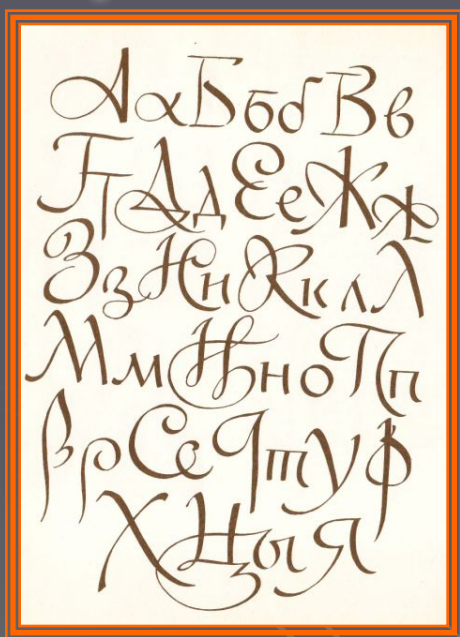 АаБббВв
ГгДдЕеЖж
ЗзИиКклЛ
МмНноПп
РрСсТтУФ
ХЦыЯ